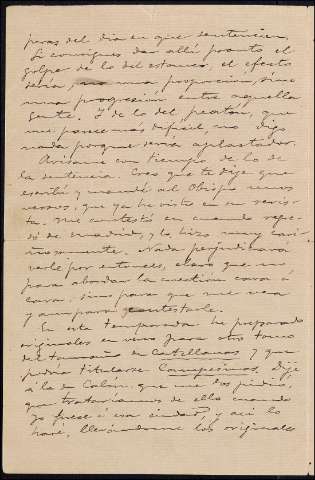 peras del día en que sentencien.
Si consigues dar allí pronto el
golpe de lo del estanco, el efecto
sería, no una proporción, sino
una progresión entre aquella
gente. Y de lo del peatón, que
me parece más difícil, no digo
nada porque sería aplastador.
Avísame con tiempo de lo de
la sentencia. Creo que te dije que
escribí y mandé al Obispo unos
versos, que ya he visto en su revis-
ta. Me contestó en cuando regre-
só de Madrid, y lo hizo muy cari-
ñosamente. Nada perjudicará
verle por entonces, claro que no
para abordar la cuestión cara á
cara, sino para que me vea
y para contestarle.
En esta temporada he preparado
originales en verso para otro tomo
del tamaño de Castellanas y que
podría titularse Campesinas. Dije
á la de Calón que me los pidió,
que trataríamos de ello cuando
yo fuese á esa ciudad, y así lo
haré, llevándome los originales